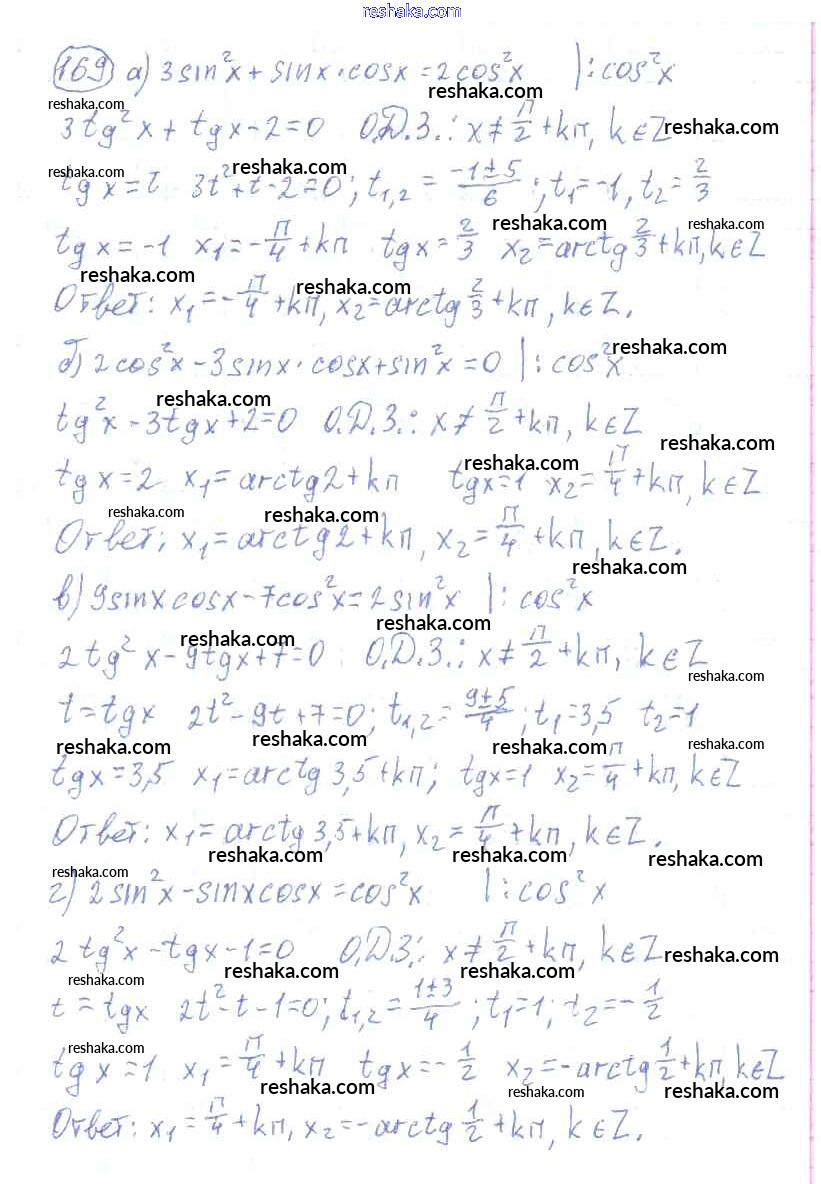 reshaka.com
169 а) 3sin²x + sinx·cosx = 2cos²x |:cos²x
reshaka.com reshaka.com
3tg²x + tgx - 2 = 0 О.Д.З.: x ≠ π/2 + kπ, k∈Z reshaka.com
reshaka.com reshaka.com
tgx = t 3t² + t - 2 = 0; t₁,₂ = (-1±5)/6; t₁ = -1, t₂ = 2/3
reshaka.com reshaka.com
tgx = -1 x₁ = -π/4 + kπ tgx = 2/3 x₂ = arctg 2/3 + kπ, k∈Z
reshaka.com reshaka.com
Ответ: x₁ = -π/4 + kπ, x₂ = arctg 2/3 + kπ, k∈Z.
б) 2cos²x - 3sinx·cosx + sin²x = 0 |:cos²x reshaka.com
reshaka.com
tg²x - 3tgx + 2 = 0 О.Д.З.: x ≠ π/2 + kπ, k∈Z
reshaka.com
reshaka.com
tgx = 2 x₁ = arctg2 + kπ tgx = 1 x₂ = π/4 + kπ, k∈Z
reshaka.com reshaka.com
Ответ: x₁ = arctg2 + kπ, x₂ = π/4 + kπ, k∈Z.
reshaka.com
в) 9sinxcosx - 7cos²x = 2sin²x |:cos²x
reshaka.com reshaka.com
2tg²x - 9tgx + 7 = 0 О.Д.З.: x ≠ π/2 + kπ, k∈Z
reshaka.com
t = tgx 2t² - 9t + 7 = 0; t₁,₂ = (9±5)/4; t₁ = 3,5 t₂ = 1
reshaka.com reshaka.com reshaka.com reshaka.com
tgx = 3,5 x₁ = arctg3,5 + kπ; tgx = 1 x₂ = π/4 + kπ, k∈Z
Ответ: x₁ = arctg3,5 + kπ, x₂ = π/4 + kπ, k∈Z.
reshaka.com reshaka.com reshaka.com reshaka.com
г) 2sin²x - sinxcosx = cos²x |:cos²x
2tg²x - tgx - 1 = 0 О.Д.З.: x ≠ π/2 + kπ, k∈Z reshaka.com
reshaka.com reshaka.com reshaka.com
t = tgx 2t² - t - 1 = 0; t₁,₂ = (1±3)/4; t₁ = 1; t₂ = -1/2
reshaka.com
tgx = 1 x₁ = π/4 + kπ tgx = -1/2 x₂ = -arctg 1/2 + kπ, k∈Z
reshaka.com reshaka.com reshaka.com
Ответ: x₁ = π/4 + kπ, x₂ = -arctg 1/2 + kπ, k∈Z.